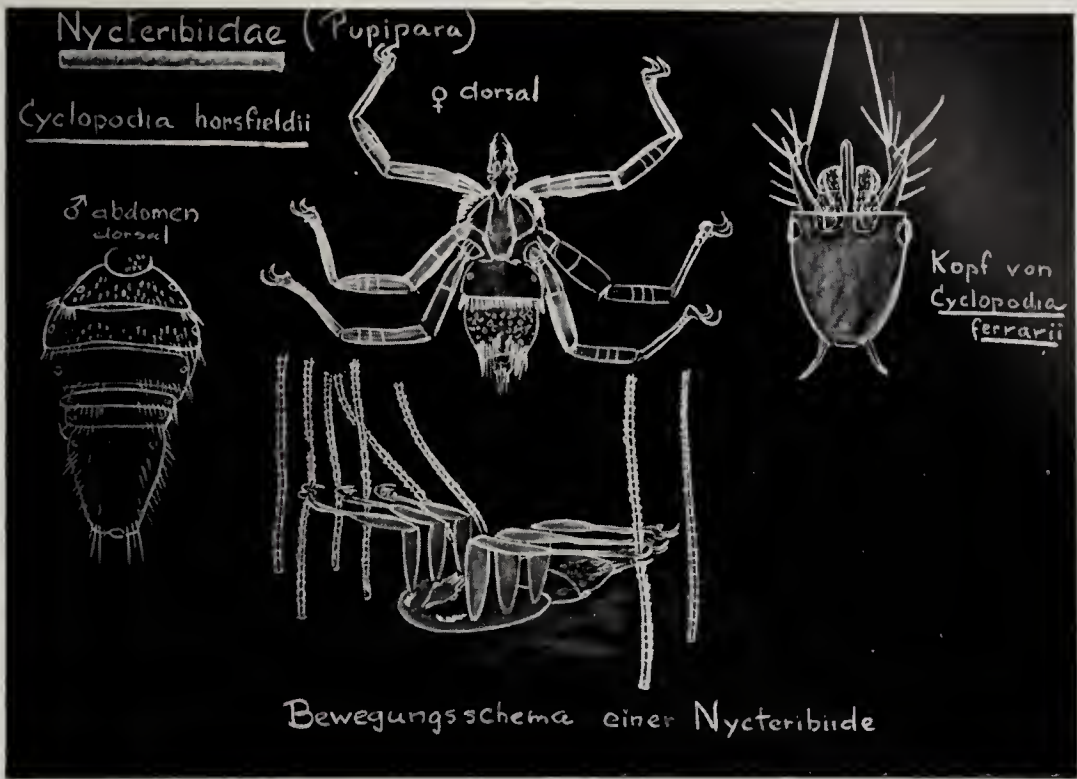 Nycteribiidae (Pupipara)
Cyclopodia horsfieldii
♀ dorsal
♂ abdomen
dorsal
Kopf von
Cyclopodia
ferrarii
Bewegungsschema einer Nycteribiide